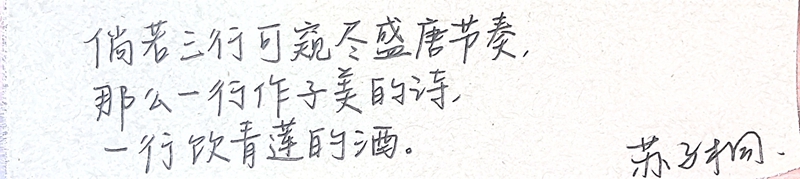 倘若三行可窥尽盛唐节奏,
那么一行作子美的诗,
一行饮青莲的酒。
苏子桐.